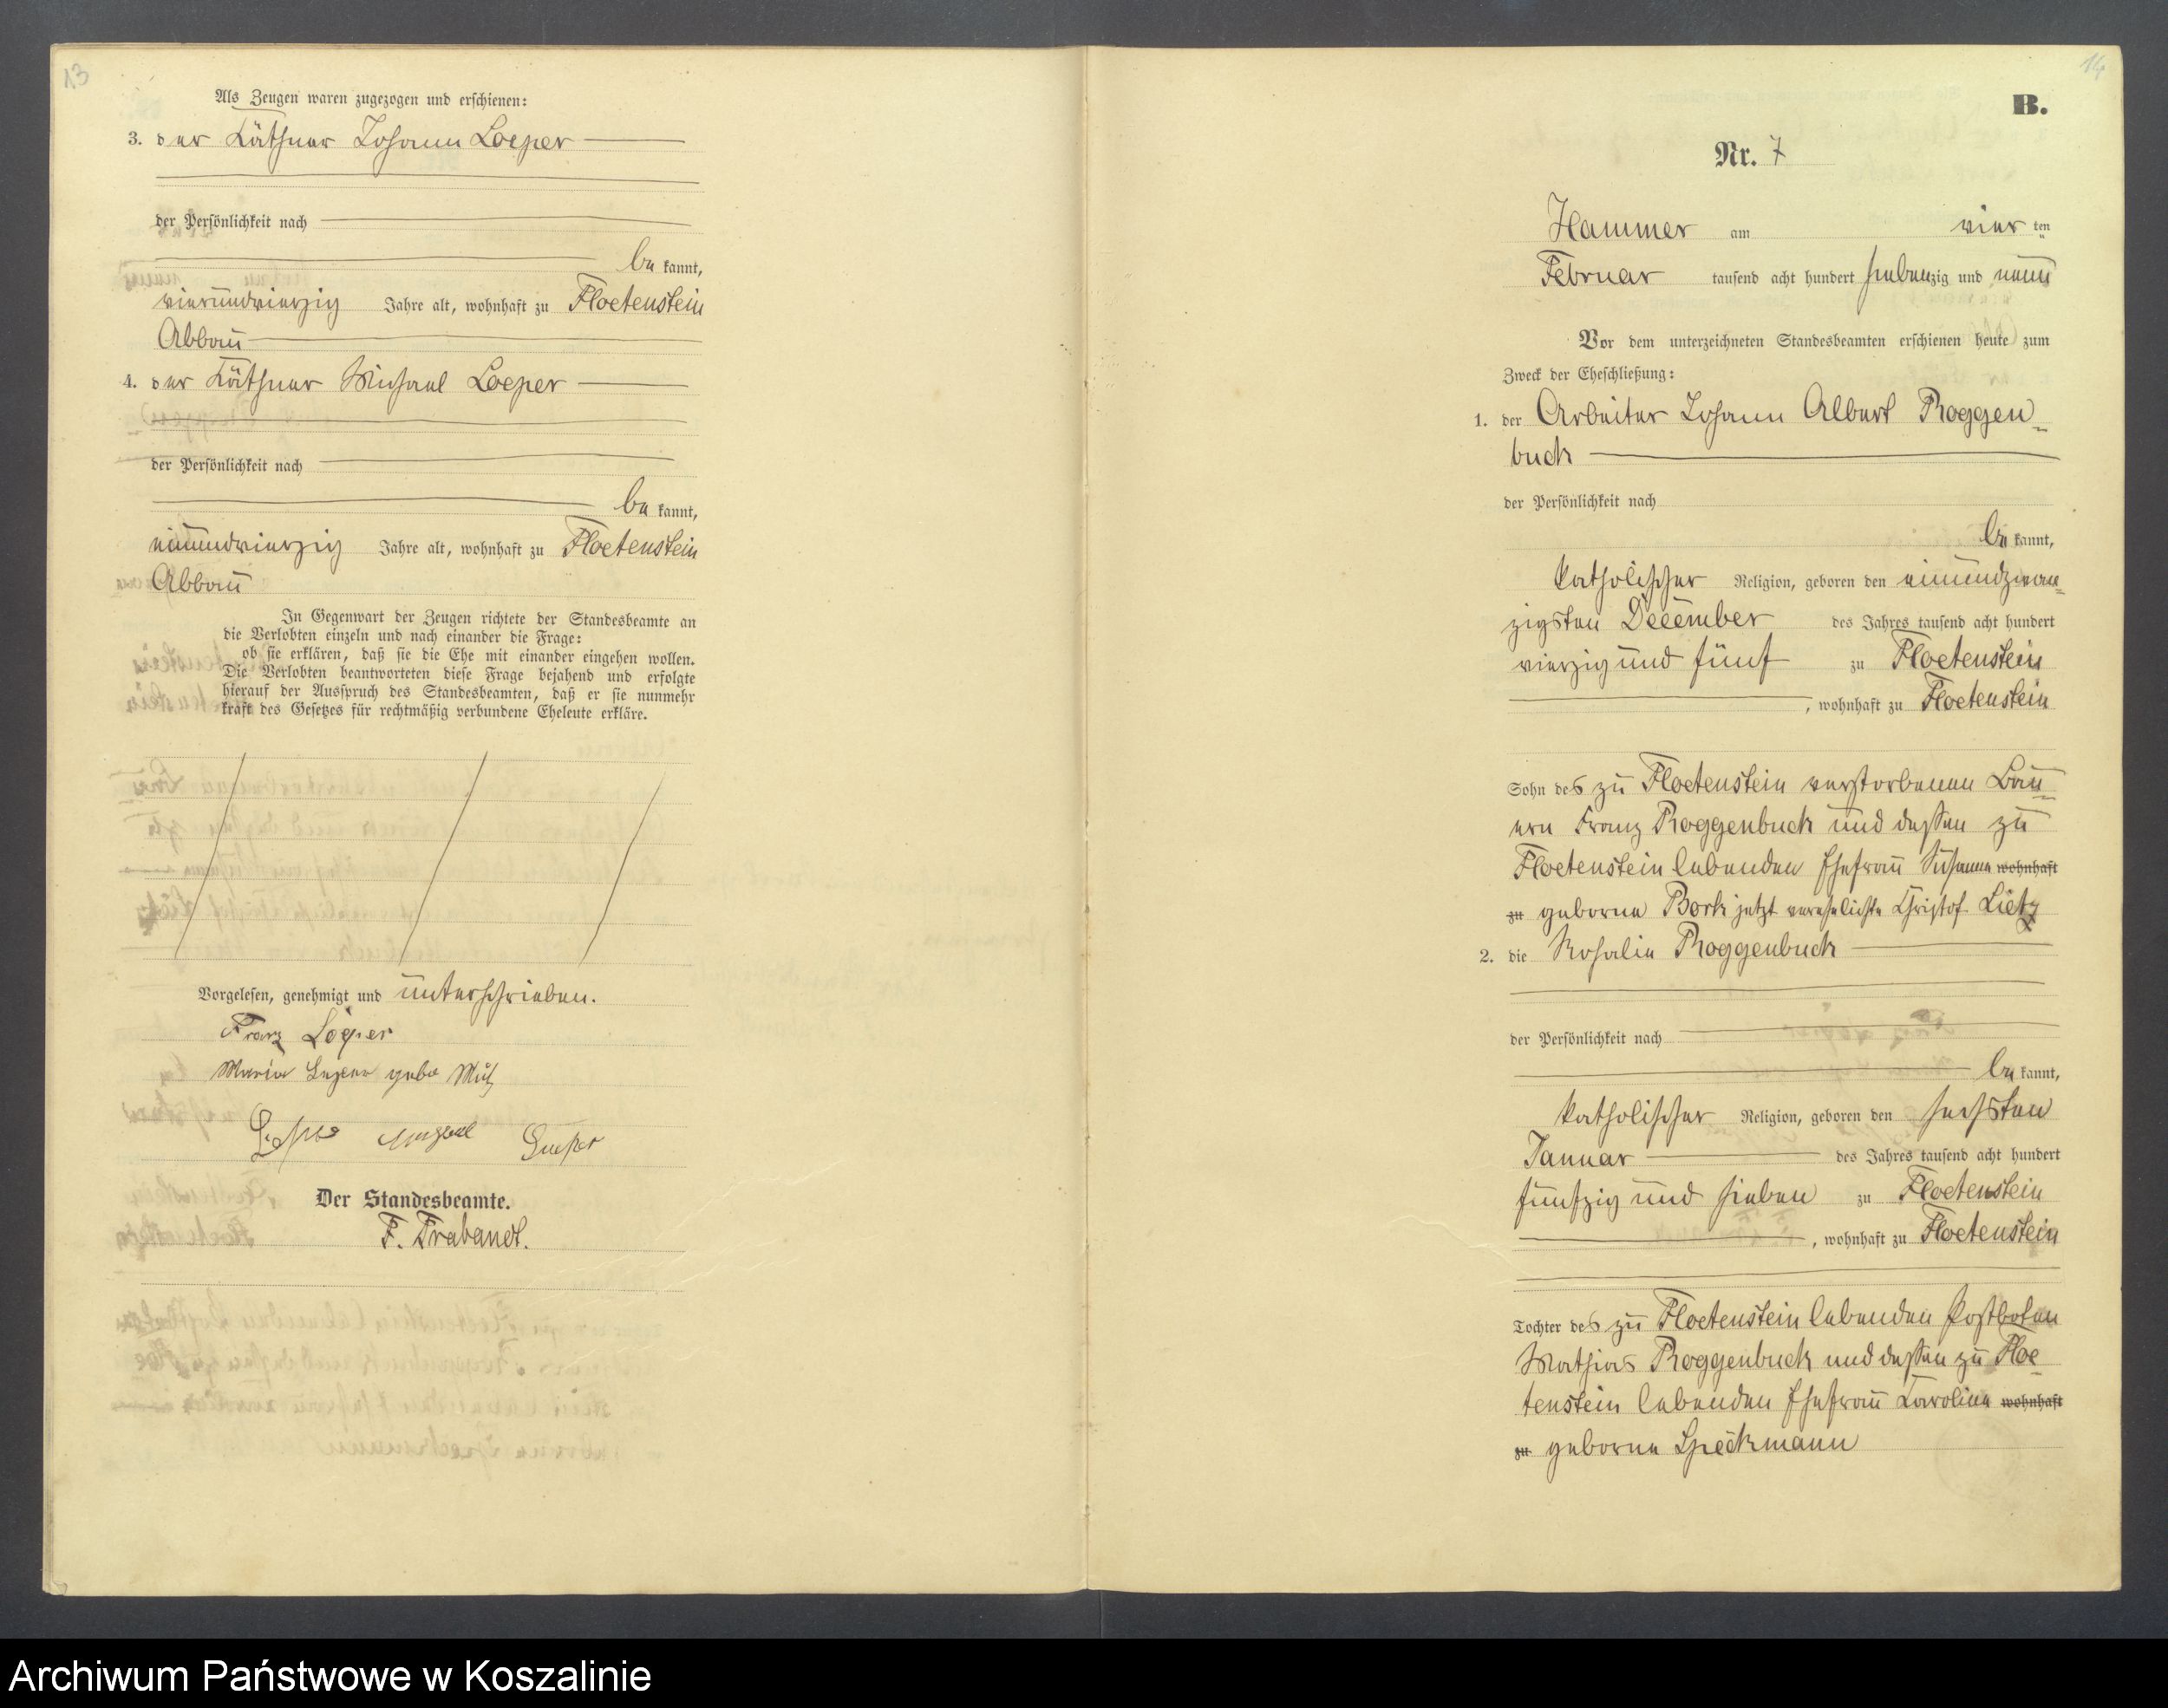 13
Als Zeugen waren zugezogen und erschienen:
3. der Käthner Johann Loeper
der Persönlichkeit nach
bekannt,
vierundvierzig Jahre alt, wohnhaft zu Floetenstein
Abbau
4. der Käthner Michael Loeper
der Persönlichkeit nach
bekannt,
einundvierzig Jahre alt, wohnhaft zu Floetenstein
Abbau
In Gegenwart der Zeugen richtete der Standesbeamte an
die Verlobten einzeln und nach einander die Frage:
ob sie erklären, daß sie die Ehe mit einander eingehen wollen.
Die Verlobten beantworteten diese Frage bejahend und erfolgte
hierauf der Ausspruch des Standesbeamten, daß er sie nunmehr
kraft des Gesetzes für rechtmäßig verbundene Eheleute erkläre.
Vorgelesen, genehmigt und unterschrieben.
Franz Löper
Maria
Der Standesbeamte.
F. Prabandt.
14
B.
Nr. 7
Hammer am vier ten
Februar tausend acht hundert siebenzig und neun
Vor dem unterzeichneten Standesbeamten erschienen heute zum
Zweck der Eheschließung:
1. der Arbeiter Johann Albert Roggen-
buck
der Persönlichkeit nach
bekannt,
katholischer Religion, geboren den einundzwan-
zigsten December des Jahres tausend acht hundert
vierzig und fünf zu Floetenstein
, wohnhaft zu Floetenstein
Sohn des zu Floetenstein verstorbenen Bau-
ern Franz Roggenbuck und dessen zu
Floetenstein lebenden Ehefrau Susanna wohnhaft
zu geborne Bork jetzt verehelichte Christof Lietz
2. die Rosalie Roggenbuck
der Persönlichkeit nach
bekannt,
katholischer Religion, geboren den sechsten
Januar des Jahres tausend acht hundert
fünfzig und sieben zu Floetenstein
, wohnhaft zu Floetenstein
Tochter des zu Floetenstein lebenden Postboten
Mathias Roggenbuck und dessen zu Floe-
tenstein lebenden Ehefrau Karoline wohnhaft
zu geborne Speckmann
Archiwum Państwowe w Koszalinie